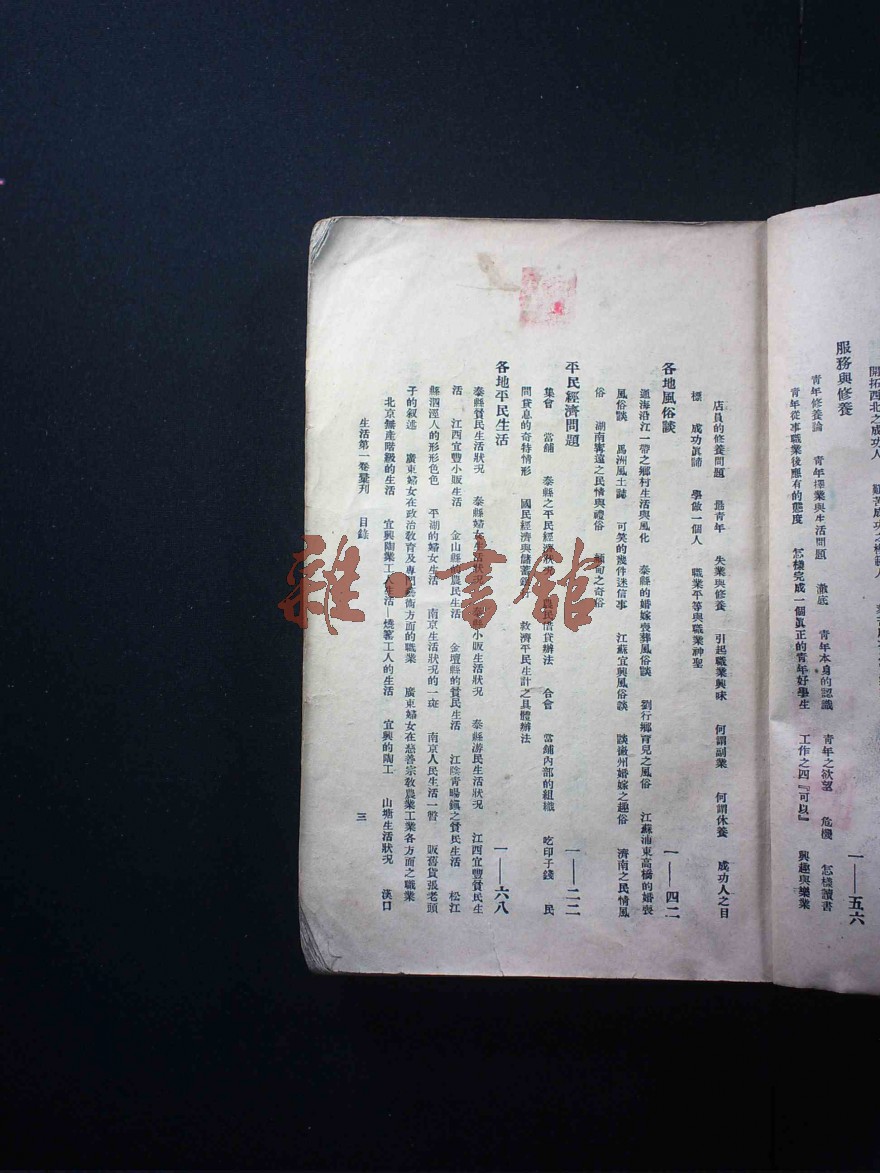 開拓西北之成功人
服務與修養　一—五六
青年修養論　青年擇業與生活問題　澈底　青年本身的認識　青年之欲望　危機　怎樣讀書
青年從事職業後應有的態度　怎樣完成一個眞正的青年好學生　工作之四『可以』　興趣與樂業
店員的修養問題　是青年　失業與修養　引起職業興味　何謂副業　何謂休養　成功人之目
標　成功眞諦　學做一個人　職業平等與職業神聖
各地風俗談　一—四二
通海沿江一帶之鄉村生活與風化　泰縣的婚嫁喪葬風俗談　劉行鄉育兒之風俗　江蘇浦東高橋的婚喪
風俗談　馬洲風土誌　可笑的幾件迷信事　江蘇宜興風俗談　談徽州婚嫁之趣俗　濟南之民情風
俗　湖南寶遠之民情與禮俗　緬甸之奇俗
平民經濟問題　一—二二
集會　當舖　泰縣之平民經濟狀況　農民借貸辦法　合會　當舖內部的組織　吃印子錢　民
間貸息的奇特情形　國民經濟與儲蓄　救濟平民生計之具體辦法
各地平民生活　一—六八
泰縣貧民生活狀況　泰縣婦女生活狀況　泰縣小販生活狀況　泰縣游民生活狀況　江西宜豐貧民生
活　江西宜豐小販生活　金山縣的農民生活　金壇縣的貧民生活　江陰青暘鎮之貧民生活　松江
縣泗涇人的形形色色　平湖的婦女生活　南京生活狀況的一斑　南京人民生活一瞥　販舊貨張老頭
子的叙述　廣東婦女在政治教育及專門藝術方面的職業　廣東婦女在慈善宗敎農業工業各方面之職業
北京無產階級的生活　宜興陶業工人生活—燒窰工人的生活　宜興的陶工　山塘生活狀況　漢口
生活第一卷彙刊　目錄　三
雜·書館